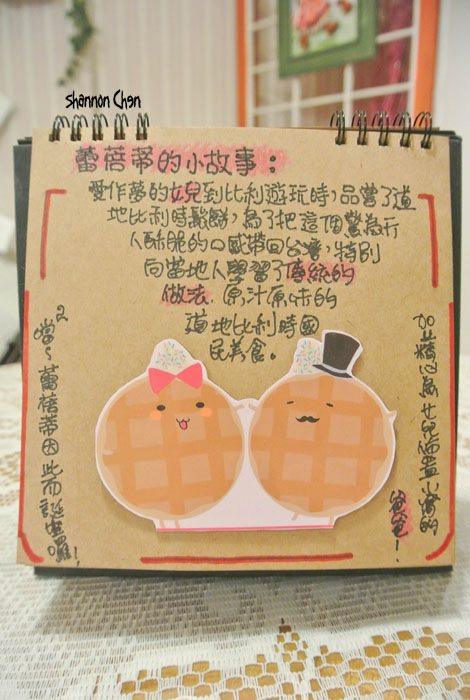 Shannon Chen
蕾蓓蒂的小故事：
愛作夢的女兒到比利遊玩時，品嘗了道
地比利時鬆餅，為了把這個驚為天
人酥脆的口感帶回台灣，特別
向當地人學習了傳統的
做法，原汁原味的
道地比利時國
民美食。
加上精心為女兒而蓋小窩的
爸爸！
噹2~蕾蓓蒂因此而誕生囉！